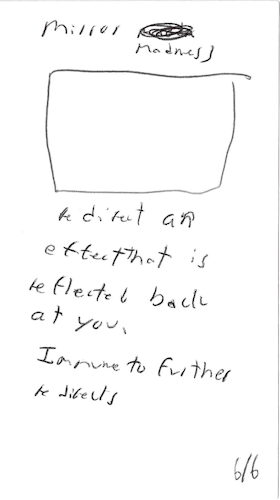 Mirror
Madness
redirect an
effect that is
reflected back
at you.
Immune to further
redirects
6/6